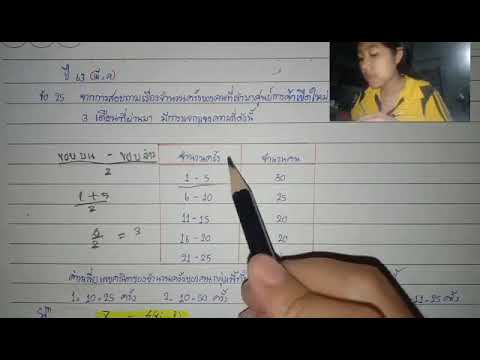 ปี 63 (มี.ค)
ข้อ 25 จากการสอบถามเรื่องจำนวนครั้งของคนที่เข้ามาศูนย์การค้าเปิดใหม่
3 เดือนที่ผ่านมา มีการแจกแจงความถี่ดังนี้
ขอบบน - ขอบล่าง
2
1 + 5
2
6
2
= 3
จำนวนครั้ง จำนวนคน
1 - 5 30
6 - 10 25
11 - 15 20
16 - 20 20
21 - 25
ค่าเฉลี่ยเลขคณิตของจำนวนครั้งของคน
1. 10.25 ครั้ง 2. 10.50 ครั้ง 11.25 ครั้ง